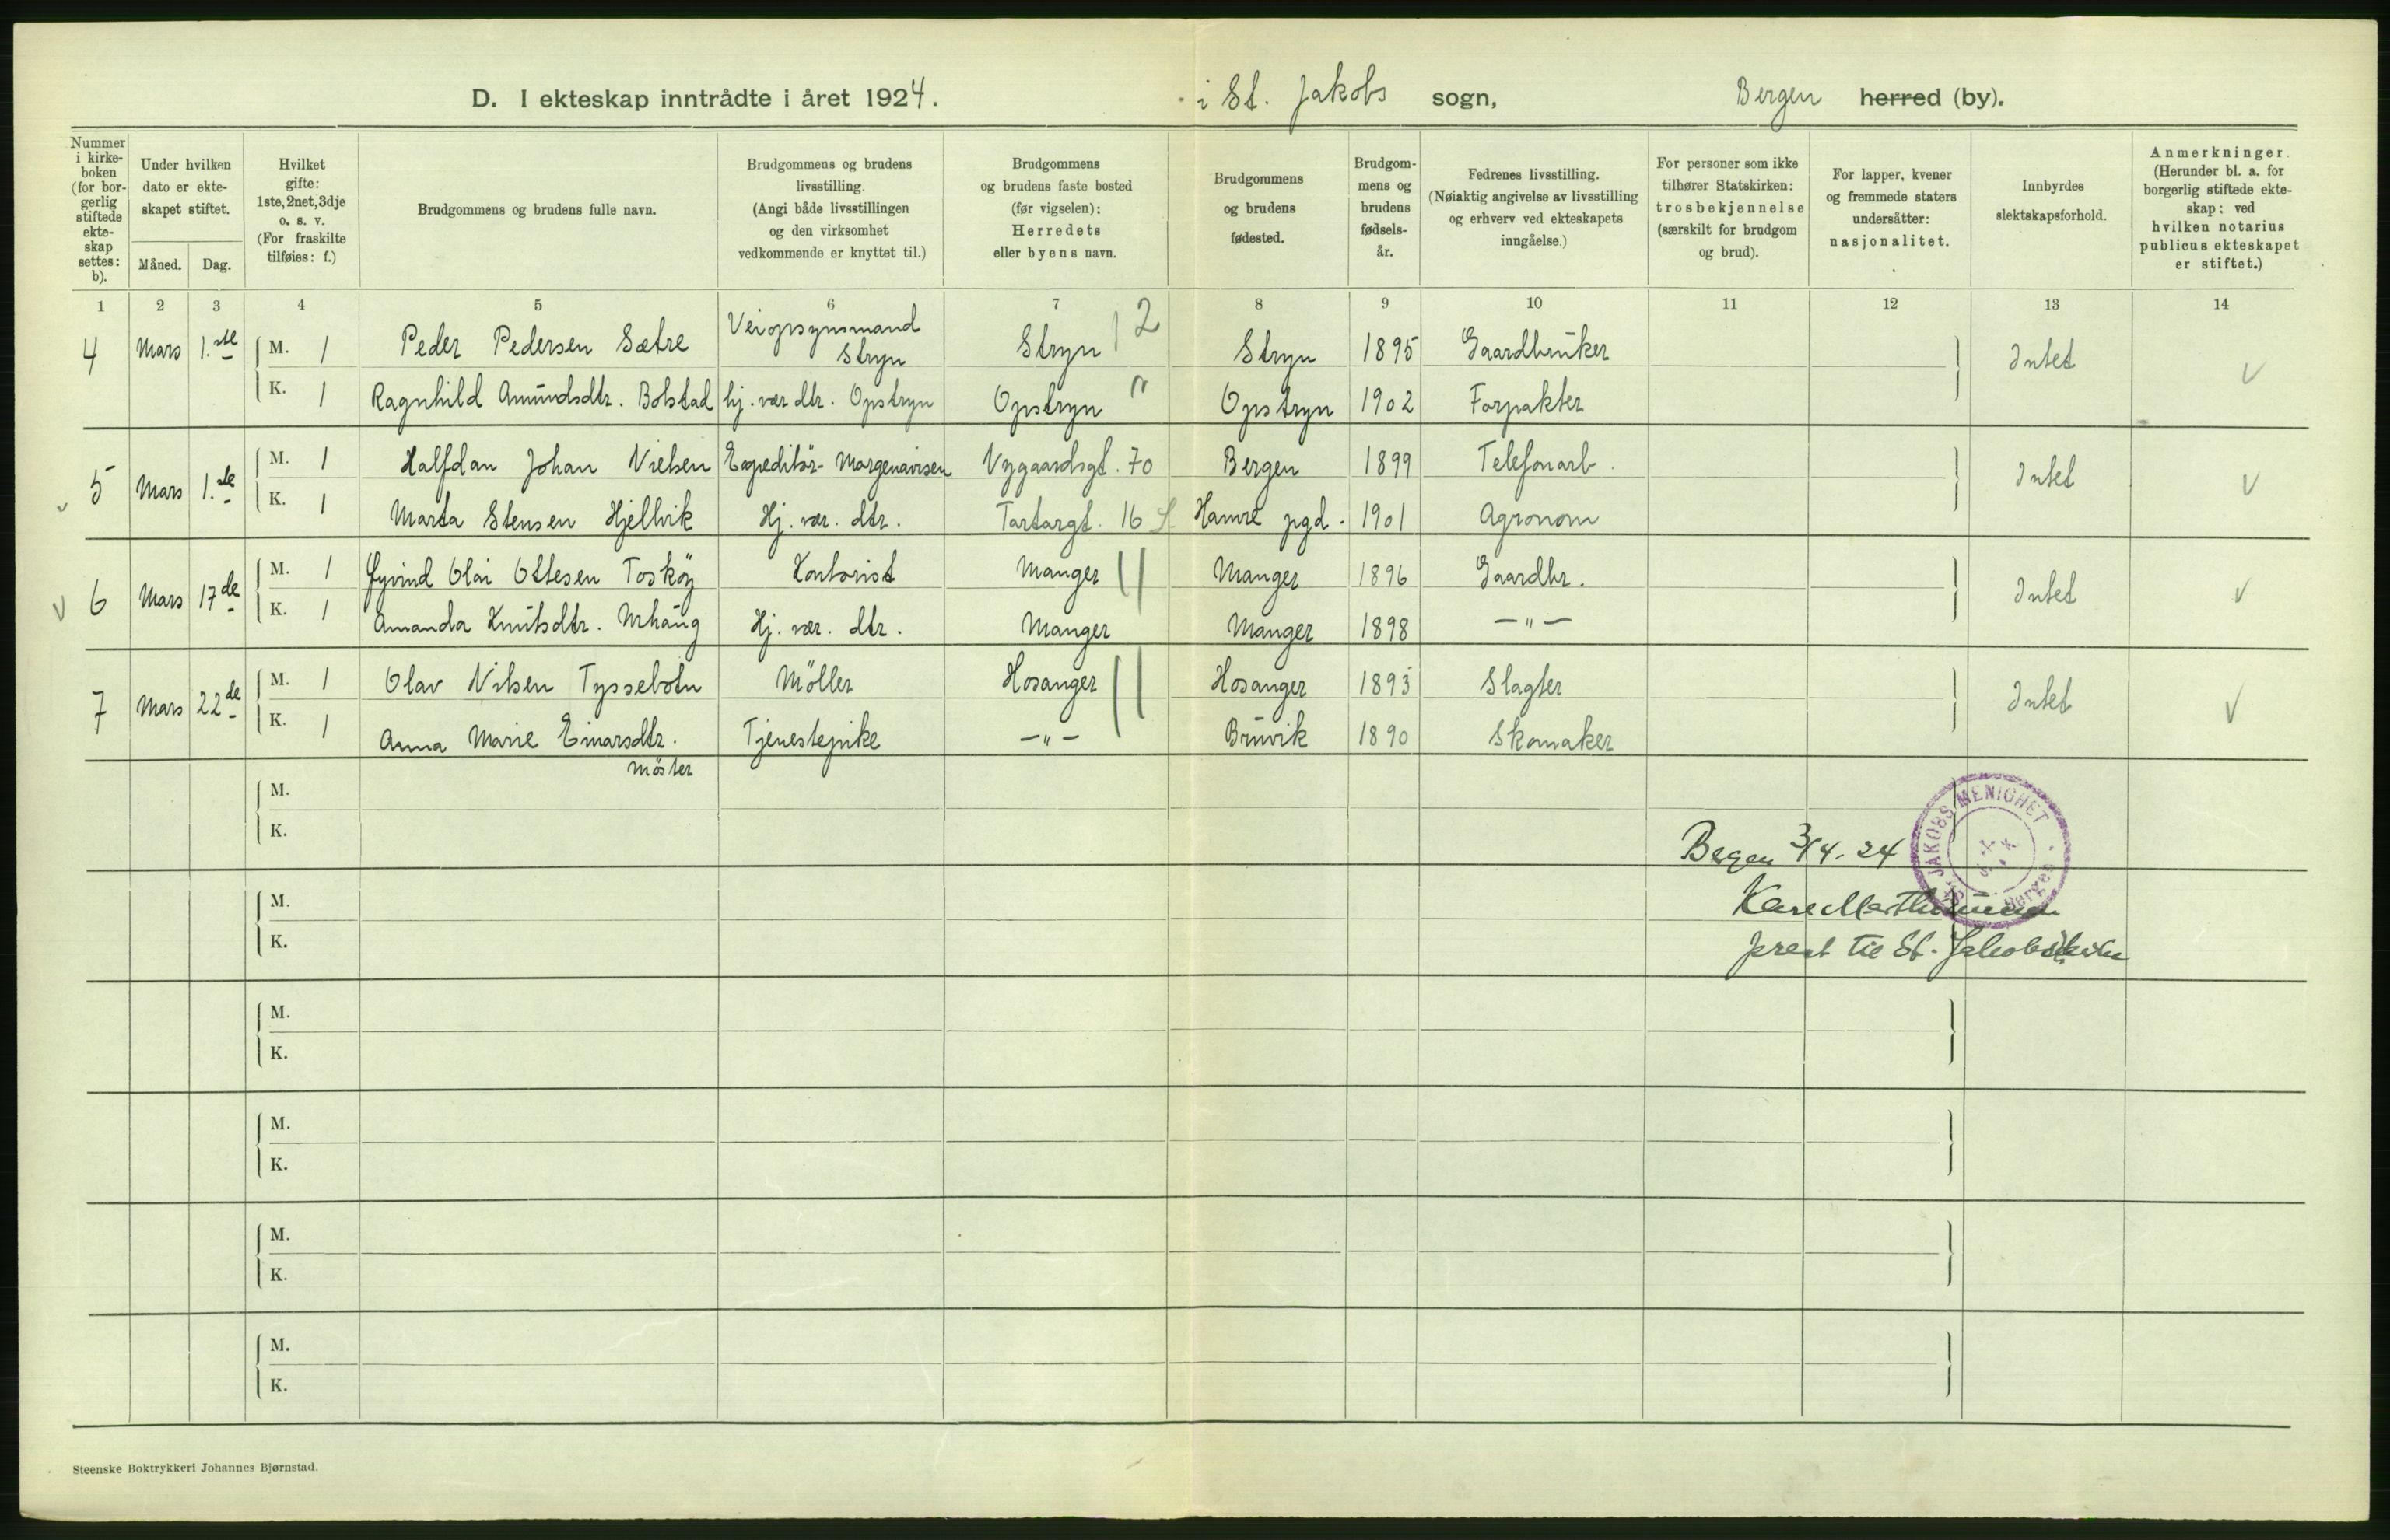 D. I ekteskap inntrådte i året 1924. i St. Jakobs sogn, Bergen herred (by).
Nummer i kirke-boken (for bor-gerlig stiftede ekte-skap settes: b).
Under hvilken dato er ekte-skapet stiftet.
Måned.
Dag.
Hvilket gifte: 1ste, 2net, 3dje o. s. v. (For fraskilte tilføies: f.)
Brudgommens og brudens fulle navn.
Brudgommens og brudens livsstilling. (Angi både livsstillingen og den virksomhet vedkommende er knyttet til.)
Brudgommens og brudens faste bosted (før vigselen): Herredets eller byens navn.
Brudgommens og brudens fødested.
Brudgom-mens og brudens fødsels-år.
Fedrenes livsstilling. (Nøiaktig angivelse av livsstilling og erhverv ved ekteskapets inngåelse.)
For personer som ikke tilhører Statskirken: trosbekjennelse (særskilt for brudgom og brud).
For lapper, kvener og fremmede staters undersåtter: nasjonalitet.
Innbyrdes slektskapsforhold.
Anmerkninger. (Herunder bl. a. for borgerlig stiftede ekte-skap: ved hvilken notarius publicus ekteskapet er stiftet.)
1 2 3 4 5 6 7 8 9 10 11 12 13 14
4 Mars 1.ste M. 1 Peder Pedersen Sætre Veiopsynsmand Stryn Stryn 12 Stryn 1895 Gaardbruker Intet
K. 1 Ragnhild Amundsdtr. Bolstad hj. vær dtr. Opstryn Opstryn " Opstryn 1902 Forpakter
5 Mars 1.ste M. 1 Halfdan Johan Nielsen Expeditör-Morgenavisen Nygaardsgt. 70 Bergen 1899 Telefonarb. Intet
K. 1 Marta Stensen Hjellvik Hj. vær. dtr. Tartargt. 16 Hamre pgd. 1901 Agronom
6 Mars 17de M. 1 Øyvind Olai Ottesen Tosköy Kontorist Manger Manger 1896 Gaardbr. Intet
K. 1 Amanda Knutsdtr. Urhaug Hj. vær. dtr. Manger Manger 1898 — " —
7 Mars 22de M. 1 Olav Nilsen Tyssebotn Möller Hosanger Hosanger 1893 Slagter Intet
K. 1 Anna Marie Einarsdtr. Tjenestepike — " — Bruvik 1890 Skomaker
Möster
M.
K.
Bergen 3/4. 24
ST. JAKOBS MENIGHET Bergen
M.
K.
prest til St. Jakobskirke
M.
K.
M.
K.
M.
K.
M.
K.
Steenske Boktrykkeri Johannes Bjørnstad.